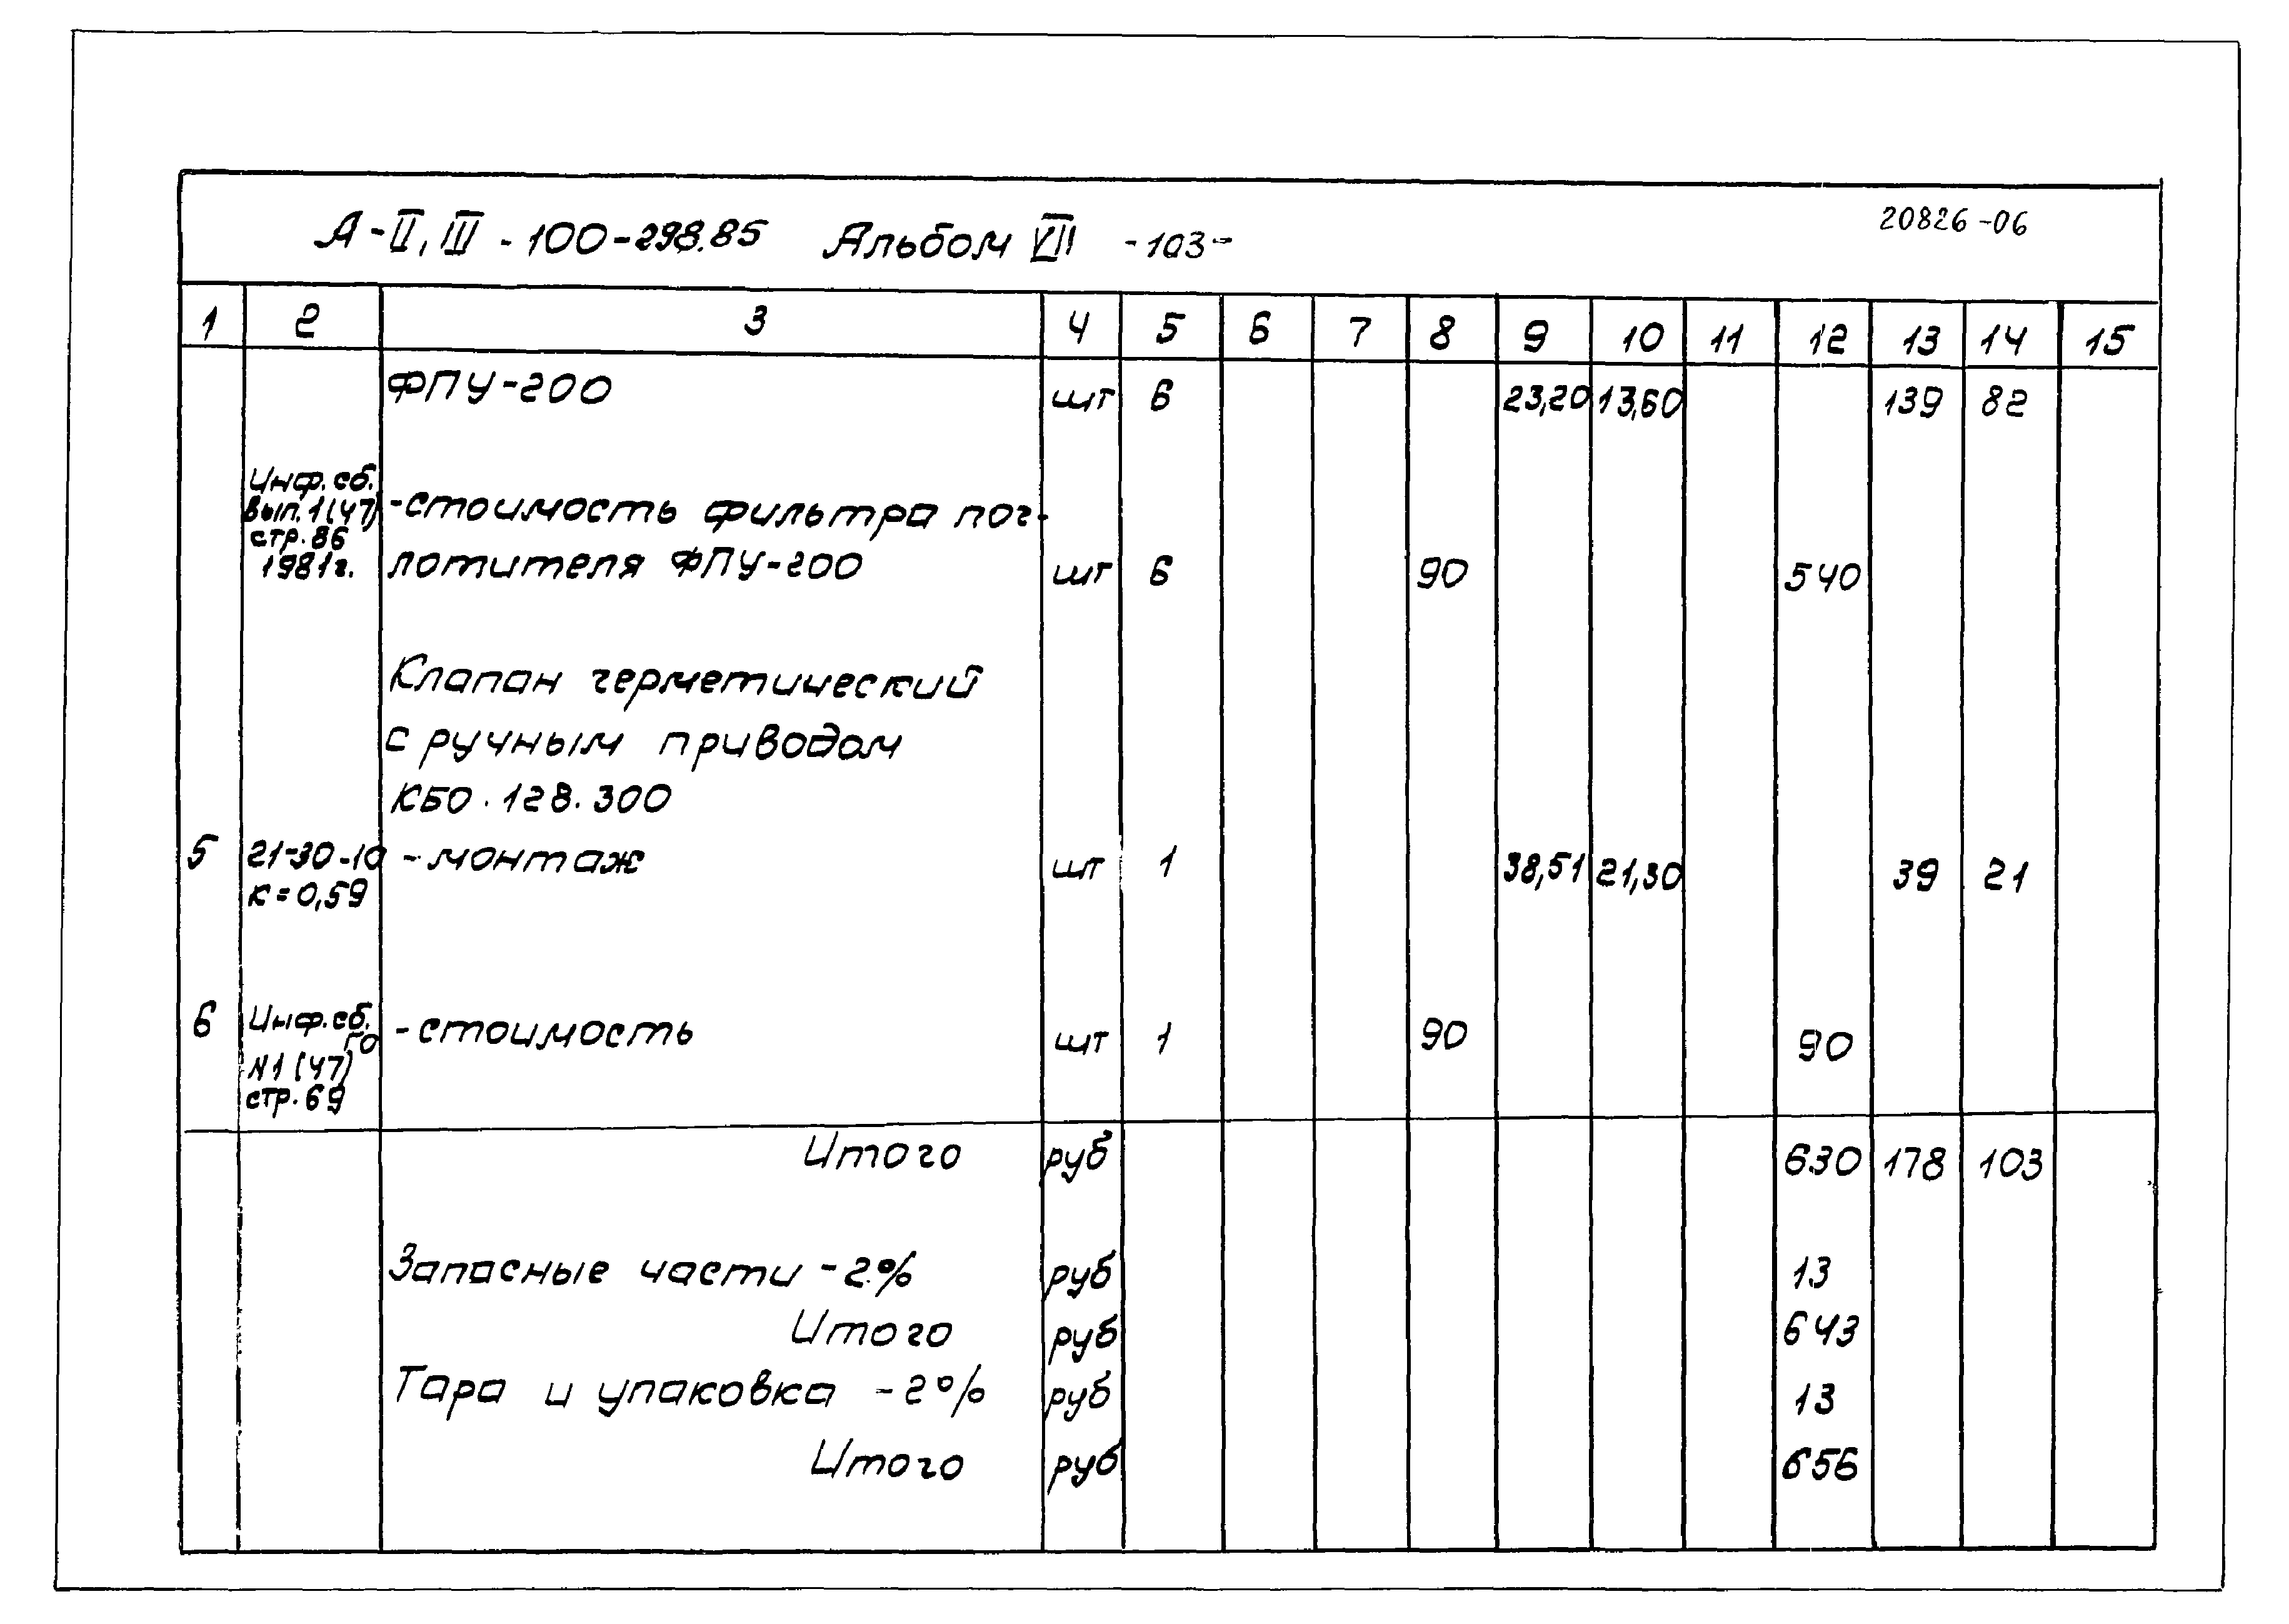 А-II, III - 100-298.85 Альбом VII -103- 20826-06
1 2 3 4 5 6 7 8 9 10 11 12 13 14 15
ФПУ-200 шт 6 23,20 13,60 139 82
Инф. сб.
вып. 1(47) -стоимость фильтра пог-
стр. 86
1981г. лотителя ФПУ-200 шт 6 90 540
Клапан герметический
с ручным приводом
КБО. 128. 300
5 21-30-10 - монтаж шт 1 38,51 21,30 39 21
к=0,59
6 Инф. сб. - стоимость шт 1 90 90
ГО
N1 (47)
стр. 69
Итого руб 630 178 103
Запасные части - 2% руб 13
Итого руб 643
Тара и упаковка - 2% руб 13
Итого руб 656